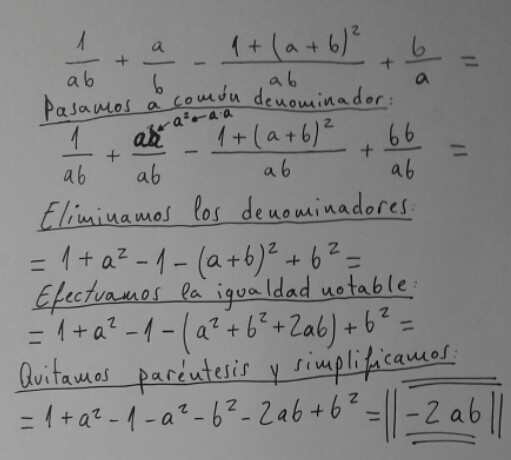 1/ab + a/b - 1+(a+b)²/ab + b/a =
Pasamos a común denominador:
1/ab + aa/ab ← a² ← a·a - 1+(a+b)²/ab + bb/ab =
Eliminamos los denominadores:
= 1+a²-1-(a+b)²+b² =
Efectuamos la igualdad notable:
= 1+a²-1-(a²+b²+2ab)+b² =
Quitamos paréntesis y simplificamos:
= 1+a²-1-a²-b²-2ab+b² = ||-2ab||